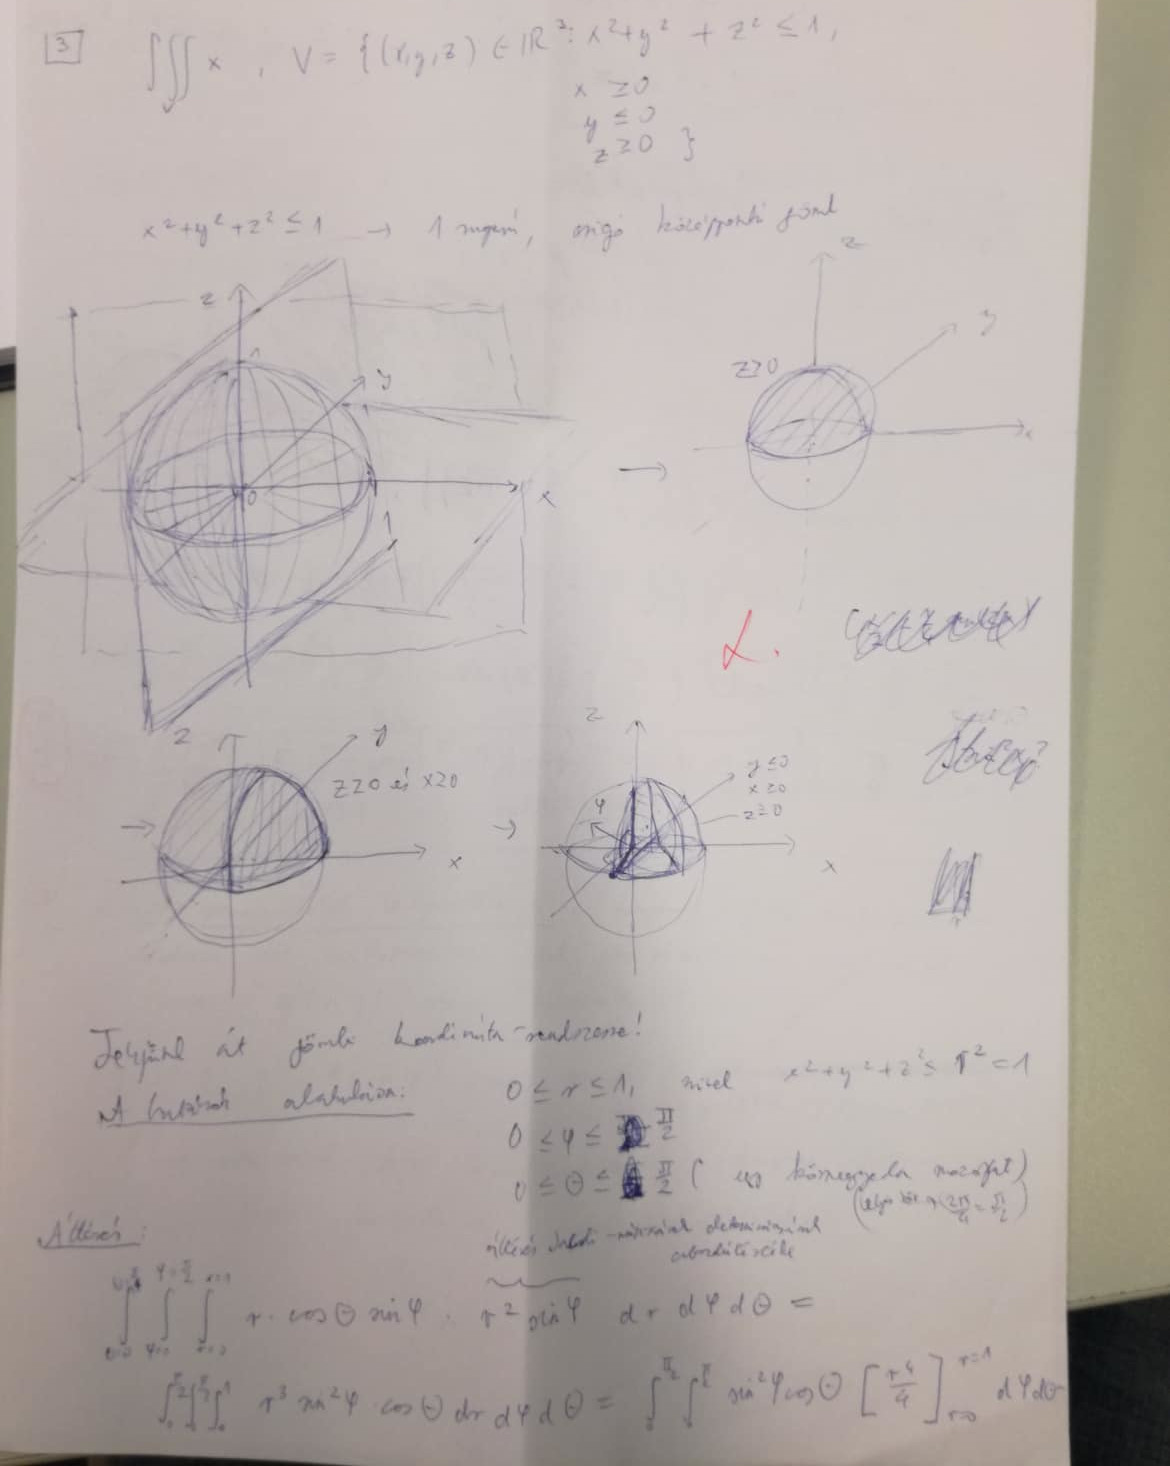 3
∫∫∫ x , V = {(x,y,z) ∈ ℝ³: x²+y² + z² ≤ 1,
V
x ≥0
y ≤ 0
z ≥0 }
x²+y²+z² ≤ 1 → 1 sugarú, origó középpontú gömb
z
y
1
0
x
1
→
z
z≥0
y
x
L.
→
z
y
z≥0 és x≥0
x
→
z
φ
y≤0
x≥0
z≥0
x
Térjünk át gömbi koordináta-rendszerre!
A határok alakulása:
0 ≤ r ≤ 1, mivel x²+y²+z² ≤ r² = 1
0 ≤ φ ≤ π/2
0 ≤ Θ ≤ π/2 ( egy körnegyeden mozoghat)
(teljes kör → 2π/4 = π/2)
Áttérés:
áttérés Jacobi-mátrixának determinánsának
abszolútértéke
∫∫∫ r · cosΘ sinφ · r² sinφ dr dφ dΘ =
∫₀^π/2 ∫₀^π/2 ∫₀¹ r³ sin²φ cosΘ dr dφ dΘ = ∫₀^π/2 ∫₀^π/2 sin²φ cosΘ [r⁴/4]_{r=0}^{r=1} dφ dΘ